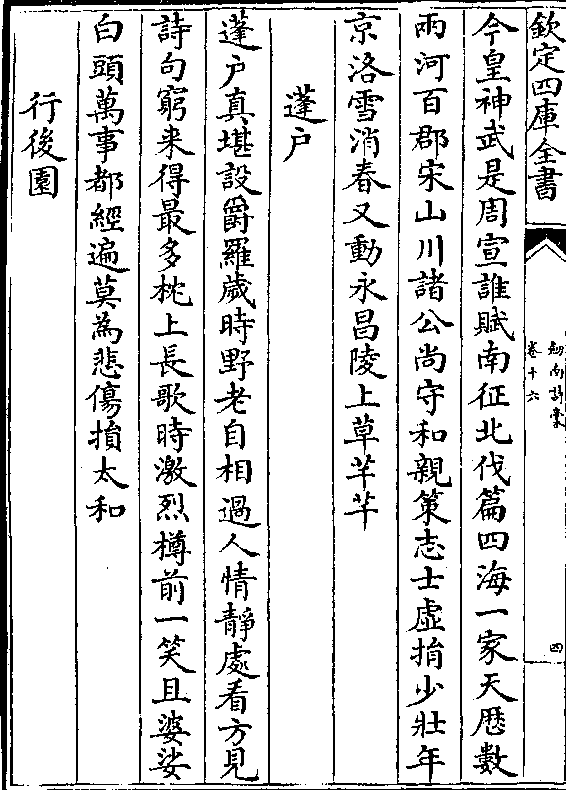 欽定四庫全書
劍南詩稾
卷十六
四
今皇神武是周宣誰賦南征北伐篇四海一家天厯數
兩河百郡宋山川諸公尚守和親策志士虛捐少壯年
京洛雪消春又動永昌陵上草芊芊
蓬户
蓬户真堪設爵羅歲時野老自相過人情靜處看方見
詩句窮来得最多枕上長歌時激烈樽前一笑且婆娑
白頭萬事都經遍莫為悲傷損太和
行後園